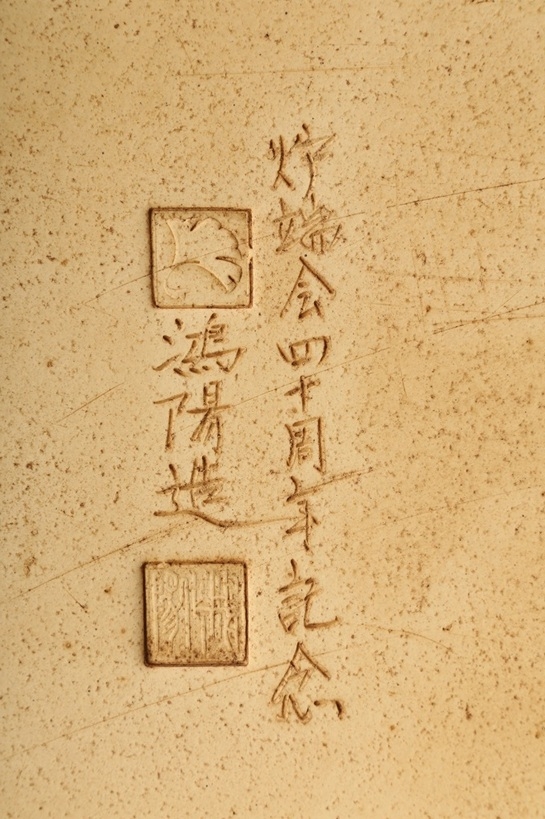 炉端会四十周年記念
鴻陽造